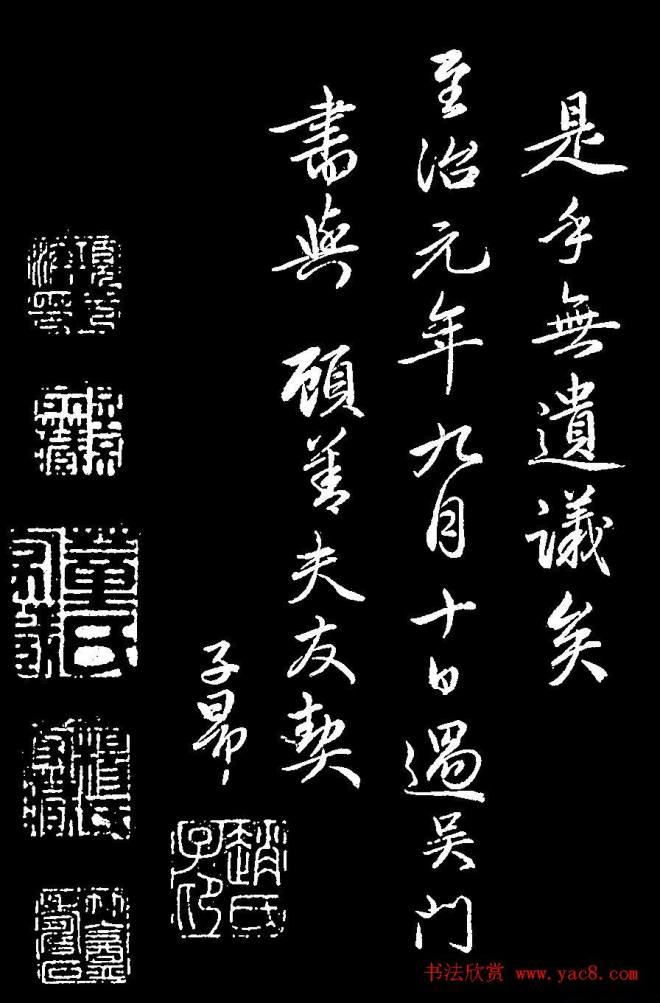 是乎無遺議矣
至治元年九月十日過吳門
書與 顧善夫友契
子昂
趙氏子印
董氏
書法欣赏 www.yac8.com